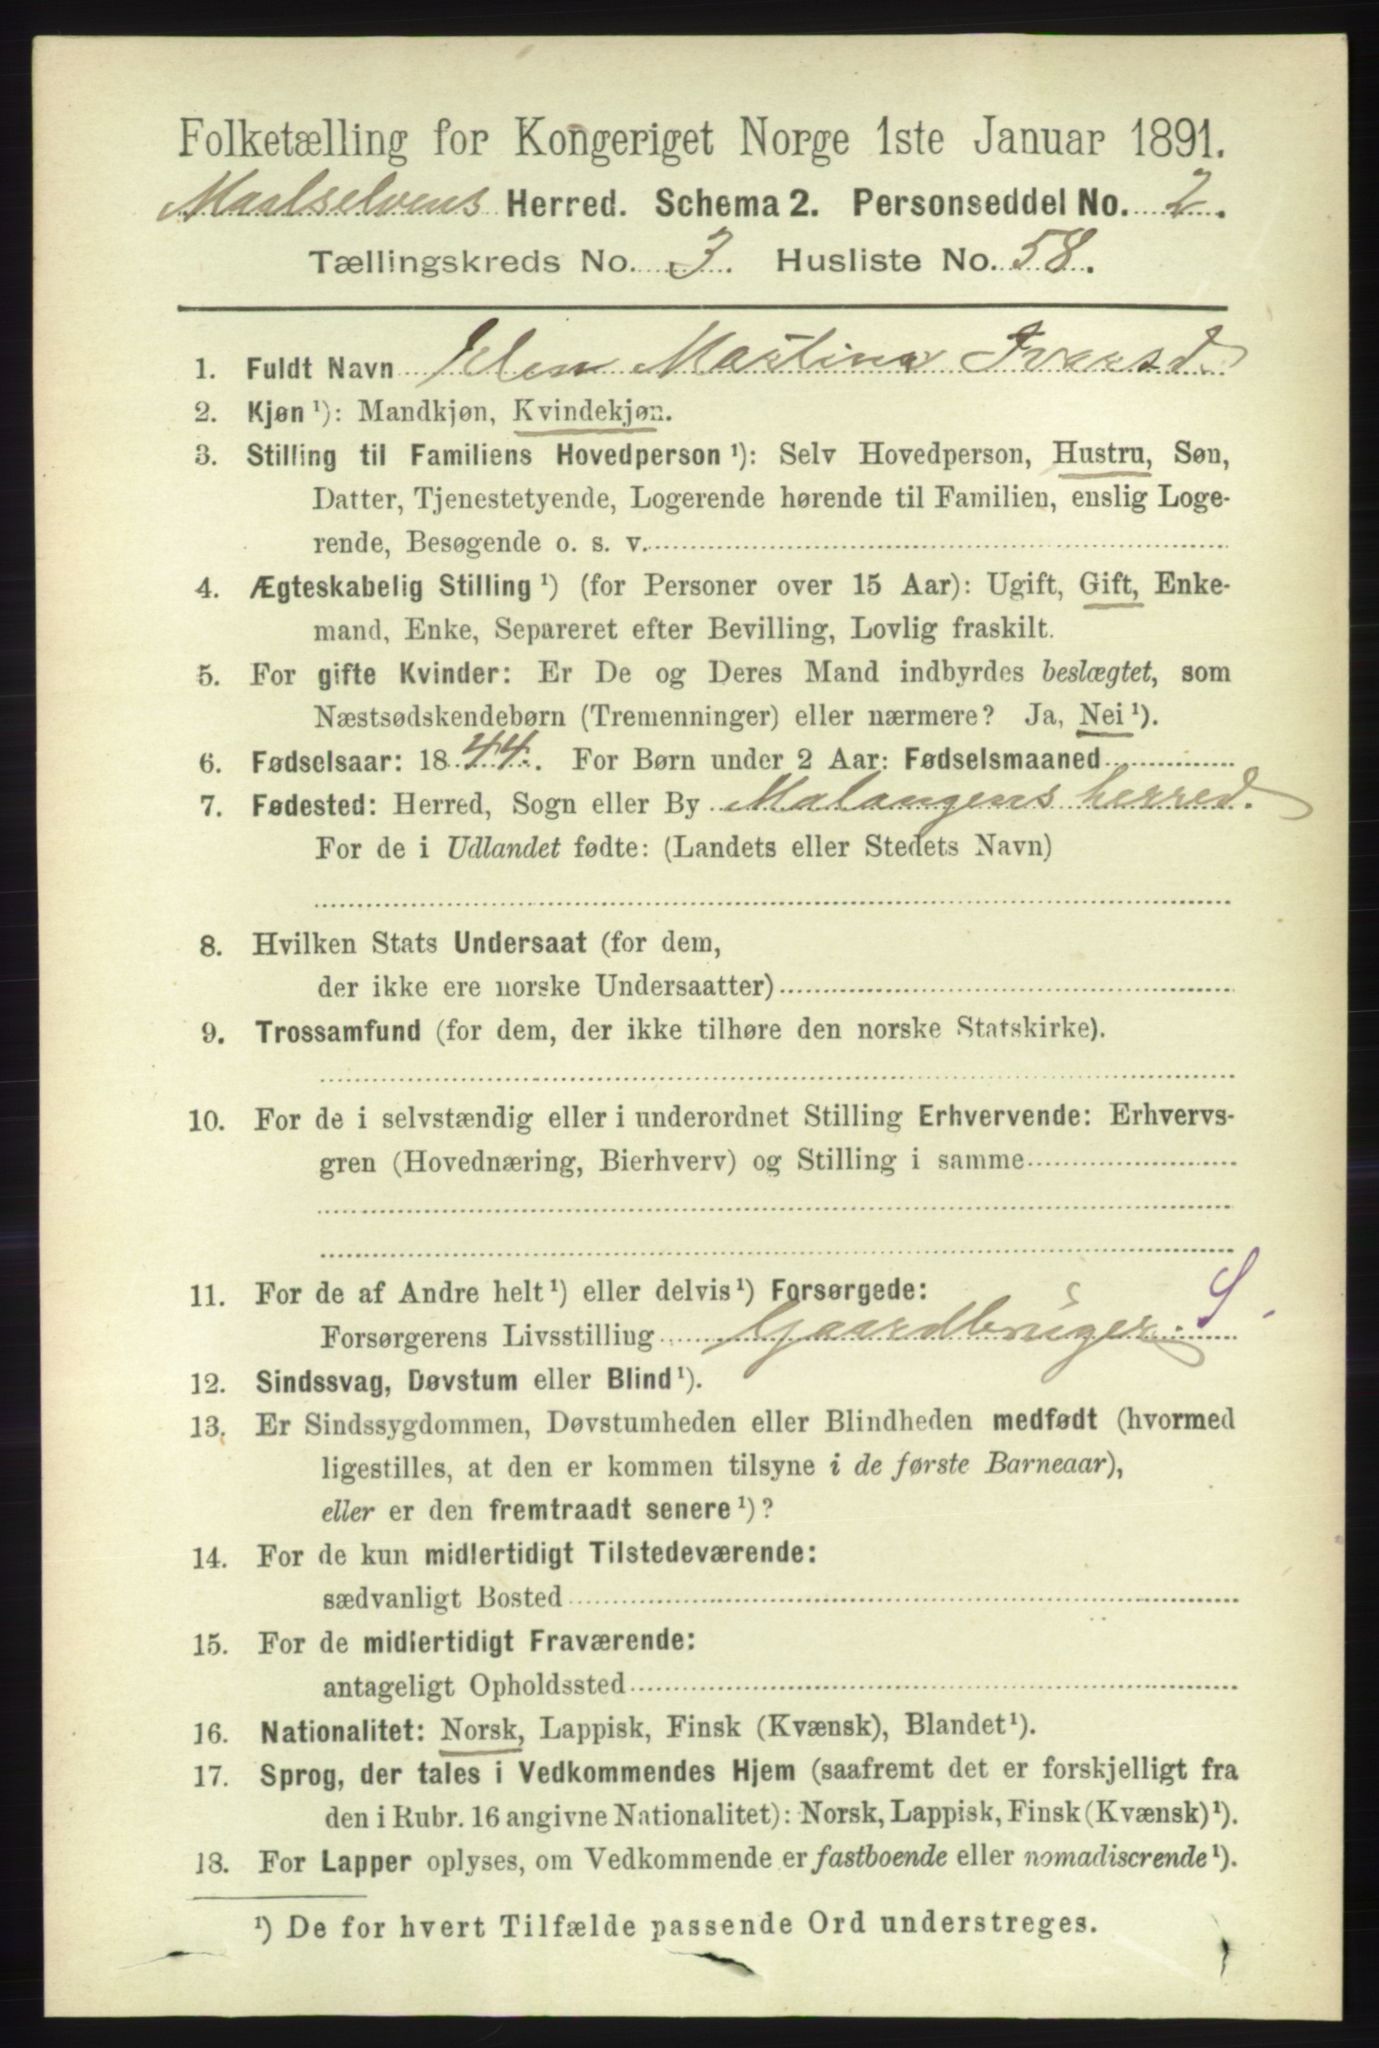 Folketælling for Kongeriget Norge 1ste Januar 1891.
Maalselvens Herred. Schema 2. Personseddel No. 2.
Tællingskreds No. 3. Husliste No. 58.
1. Fuldt Navn Elen Martina Ivarsd.
2. Kjøn ¹): Mandkjøn, Kvindekjøn.
3. Stilling til Familiens Hovedperson ¹): Selv Hovedperson, Hustru, Søn,
Datter, Tjenestetyende, Logerende hørende til Familien, enslig Loge-
rende, Besøgende o. s. v.
4. Ægteskabelig Stilling ¹) (for Personer over 15 Aar): Ugift, Gift, Enke-
mand, Enke, Separeret efter Bevilling, Lovlig fraskilt.
5. For gifte Kvinder: Er De og Deres Mand indbyrdes beslægtet, som
Næstsødskendebørn (Tremenninger) eller nærmere? Ja, Nei ¹).
6. Fødselsaar: 1844. For Børn under 2 Aar: Fødselsmaaned
7. Fødested: Herred, Sogn eller By Malangens herred.
For de i Udlandet fødte: (Landets eller Stedets Navn)
8. Hvilken Stats Undersaat (for dem,
der ikke ere norske Undersaatter)
9. Trossamfund (for dem, der ikke tilhøre den norske Statskirke).
10. For de i selvstændig eller i underordnet Stilling Erhvervende: Erhvervs-
gren (Hovednæring, Bierhverv) og Stilling i samme
11. For de af Andre helt ¹) eller delvis ¹) Forsørgede:
Forsørgerens Livsstilling Gaardbruger. S
12. Sindssvag, Døvstum eller Blind ¹).
13. Er Sindssygdommen, Døvstumheden eller Blindheden medfødt (hvormed
ligestilles, at den er kommen tilsyne i de første Barneaar),
eller er den fremtraadt senere ¹)?
14. For de kun midlertidigt Tilstedeværende:
sædvanligt Bosted
15. For de midlertidigt Fraværende:
antageligt Opholdssted
16. Nationalitet: Norsk, Lappisk, Finsk (Kvænsk), Blandet ¹).
17. Sprog, der tales i Vedkommendes Hjem (saafremt det er forskjelligt fra
den i Rubr. 16 angivne Nationalitet): Norsk, Lappisk, Finsk (Kvænsk) ¹).
18. For Lapper oplyses, om Vedkommende er fastboende eller nomadiserende ¹).
¹) De for hvert Tilfælde passende Ord understreges.